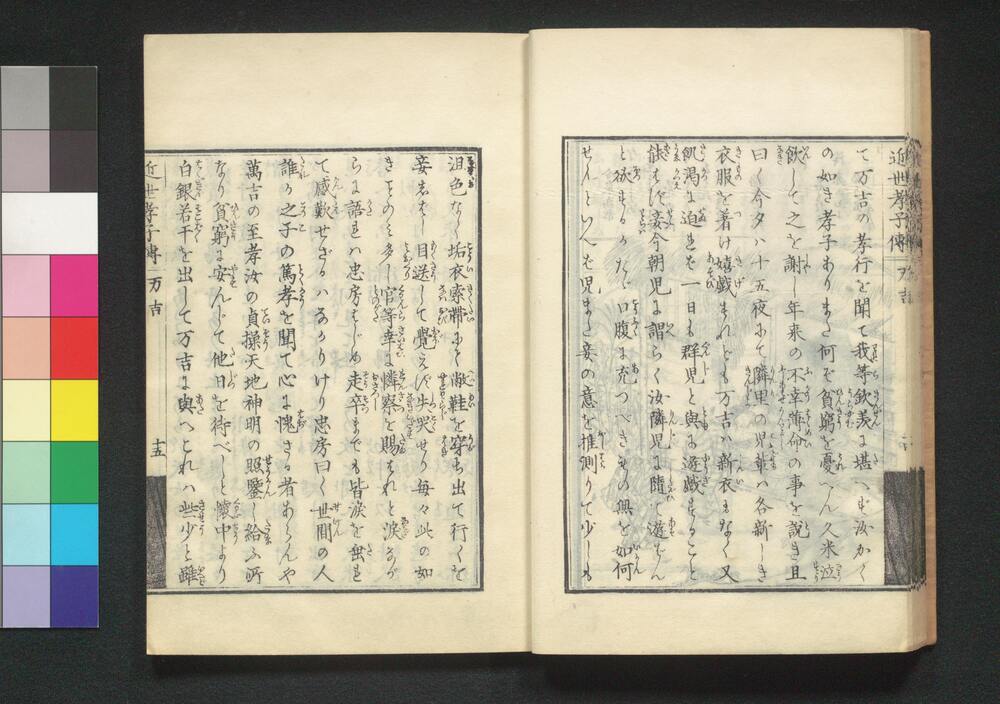 近世孝子傳 万吉
て万吉の孝行を聞て我等欽羨に堪へず汝かく
の如き孝子ありまた何ぞ貧窮を憂へん久米泣
飲して之を謝し年来の不幸薄命の事を説き且
曰く今夕ハ十五夜にて隣里の児輩ハ各新しき
衣服を着け嬉戯すれども万吉ハ新衣もなく又
飢渇に迫れば一日も群児と與に遊戯することと
能はず妾今朝児に謂らく汝隣児に随て遊ばん
と欲するか
口腹に充つべきもの無を如何
せんといへば児また妾の意を推測りて少しも
沮色なく垢衣索帯にて敝鞋を穿ち出て行くを
妾
目送して覚えず失哭せり毎々此の如
きものミ多し官等幸に憐察を賜はれと涙なが
らに語れば忠房はじめ走卒までも皆涙を垂れ
て感歎せざるハなかりけり忠房曰く世間の人
誰か之子の篤孝を聞て心に愧ざる者あらんや
萬吉の至孝汝の貞操天地神明の照鑒し給ふ所
なり貧窮に安んじて他日を待べしと懐中より
白銀若干を出して万吉に與へこれハ些少と雖
近世孝子傳 万吉 十五